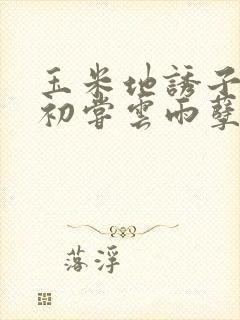 玉米地誘子
初嘗雲雨孽
落浮